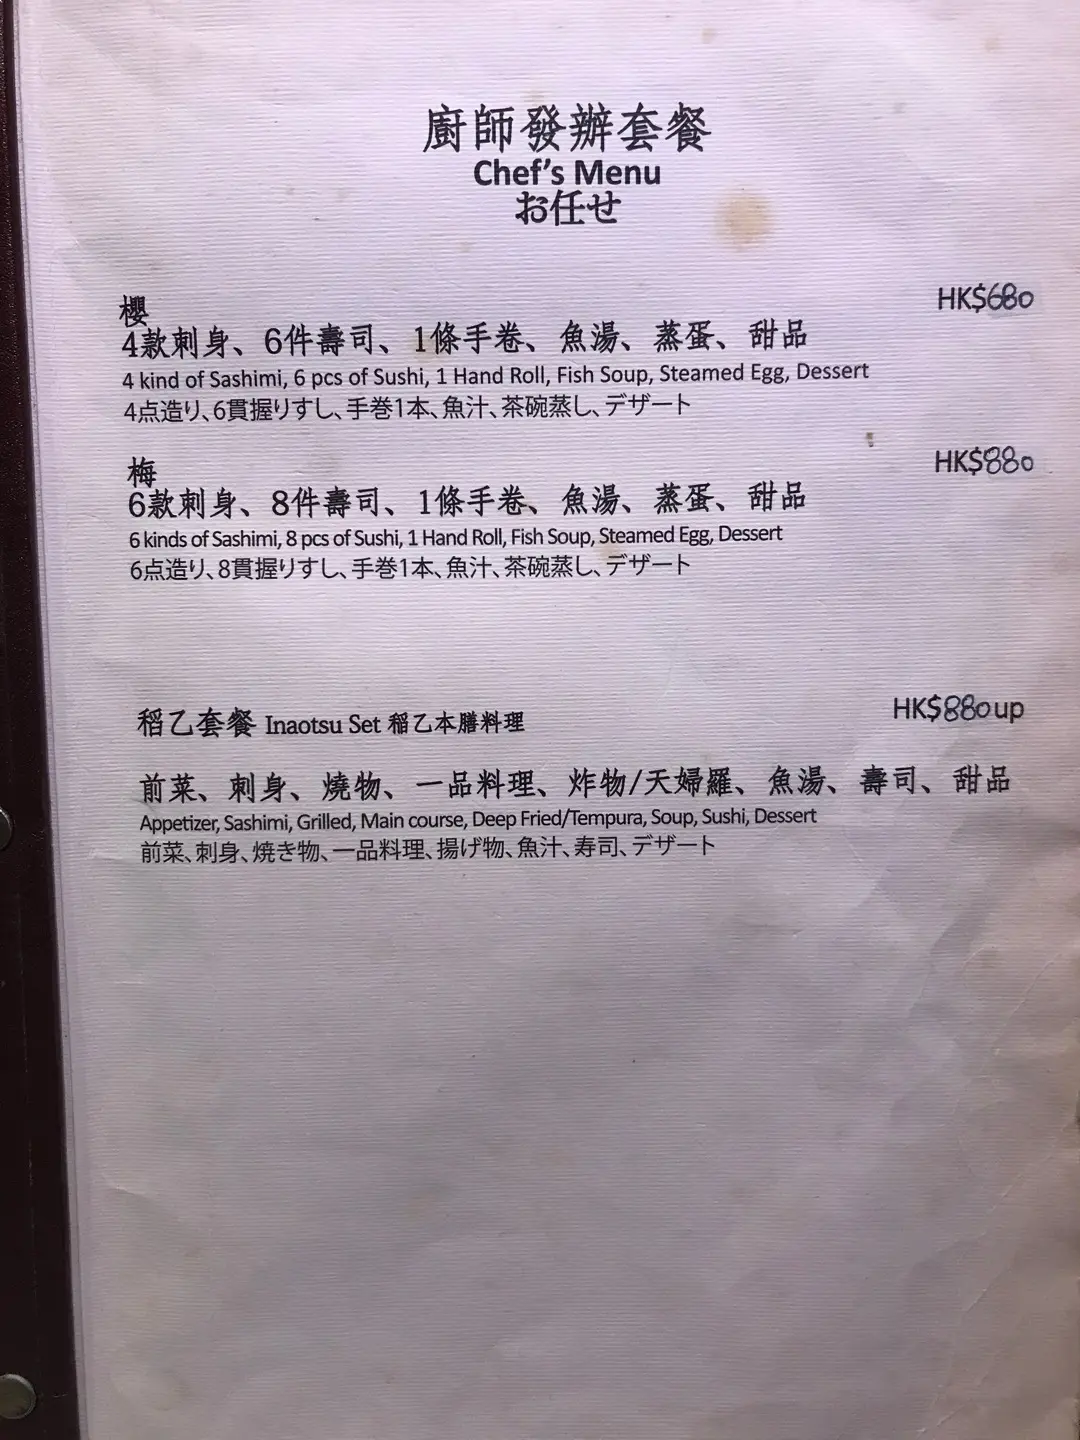 廚師發辦套餐
Chef's Menu
お任せ
櫻 HK$680
4款刺身、6件壽司、1條手卷、魚湯、蒸蛋、甜品
4 kind of Sashimi, 6 pcs of Sushi, 1 Hand Roll, Fish Soup, Steamed Egg, Dessert
4点造り、6貫握りすし、手巻1本、魚汁、茶碗蒸し、デザート
梅 HK$880
6款刺身、8件壽司、1條手卷、魚湯、蒸蛋、甜品
6 kinds of Sashimi, 8 pcs of Sushi, 1 Hand Roll, Fish Soup, Steamed Egg, Dessert
6点造り、8貫握りすし、手巻1本、魚汁、茶碗蒸し、デザート
稻乙套餐 Inaotsu Set 稲乙本膳料理 HK$880up
前菜、刺身、燒物、一品料理、炸物/天婦羅、魚湯、壽司、甜品
Appetizer, Sashimi, Grilled, Main course, Deep Fried/Tempura, Soup, Sushi, Dessert
前菜、刺身、焼き物、一品料理、揚げ物、魚汁、寿司、デザート